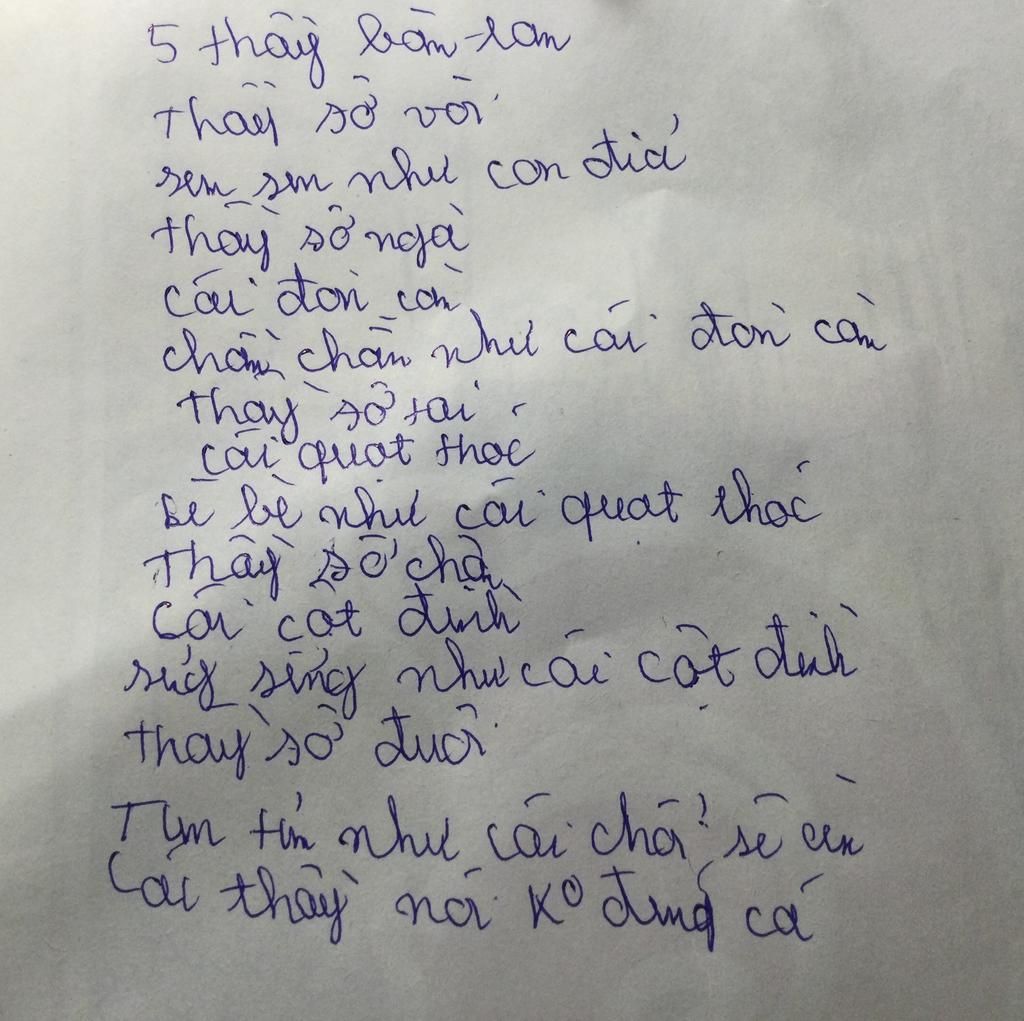 5 thầy bàn tán
Thầy sờ vòi
sun sun như con đỉa
thầy sờ ngà
cái đòn càn
chần chẫn như cái đòn càn
thầy sờ tai
cái quạt thóc
bè bè như cái quạt thóc
Thầy sờ chân
Cái cột đình
sừng sững như cái cột đình
thầy sờ đuôi
Tủn tủn như cái chổi sể cùn
Các thầy nói K° đúng cả